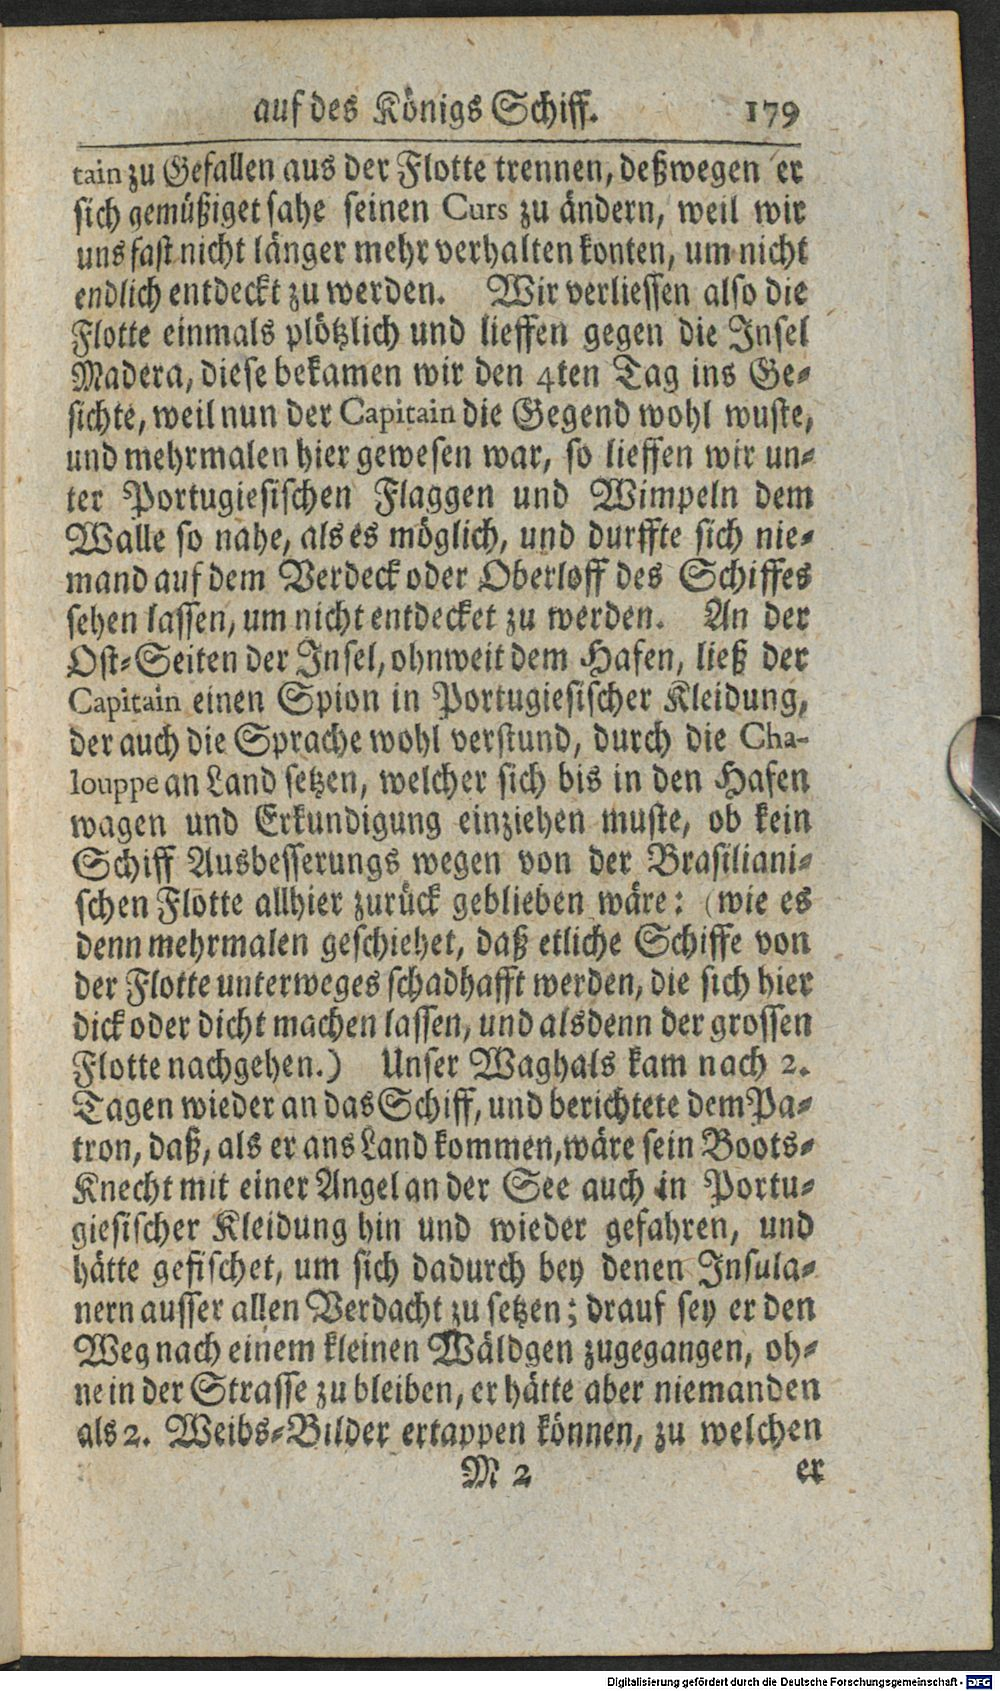 auf des Königs Schiff. 179
tain zu Gefallen aus der Flotte trennen, deßwegen er
sich gemüßiget sahe seinen Curs zu ändern, weil wir
uns fast nicht länger mehr verhalten konten, um nicht
endlich entdeckt zu werden. Wir verliessen also die
Flotte einmals plötzlich und lieffen gegen die Insel
Madera, diese bekamen wir den 4ten Tag ins Ge-
sichte, weil nun der Capitain die Gegend wohl wuste,
und mehrmalen hier gewesen war, so lieffen wir un-
ter Portugiesischen Flaggen und Wimpeln dem
Walle so nahe, als es möglich, und durffte sich nie-
mand auf dem Verdeck oder Oberloff des Schiffes
sehen lassen, um nicht entdecket zu werden. An der
Ost-Seiten der Insel, ohnweit dem Hafen, ließ der
Capitain einen Spion in Portugiesischer Kleidung,
der auch die Sprache wohl verstund, durch die Cha-
louppe an Land setzen, welcher sich bis in den Hafen
wagen und Erkundigung einziehen muste, ob kein
Schiff Ausbesserungs wegen von der Brasiliani-
schen Flotte allhier zurück geblieben wäre: (wie es
denn mehrmalen geschiehet, daß etliche Schiffe von
der Flotte unterweges schadhafft werden, die sich hier
dick oder dicht machen lassen, und alsdenn der grossen
Flotte nachgehen.) Unser Waghals kam nach 2.
Tagen wieder an das Schiff, und berichtete dem Pa-
tron, daß, als er ans Land kommen, wäre sein Boots-
Knecht mit einer Angel an der See auch in Portu-
giesischer Kleidung hin und wieder gefahren, und
hätte gefischet, um sich dadurch bey denen Insula-
nern ausser allen Verdacht zu setzen; drauf sey er den
Weg nach einem kleinen Wäldgen zugegangen, oh-
ne in der Strasse zu bleiben, er hätte aber niemanden
als 2. Weibs-Bilder ertappen können, zu welchen
M 2 er
Digitalisierung gefördert durch die Deutsche Forschungsgemeinschaft - DFG